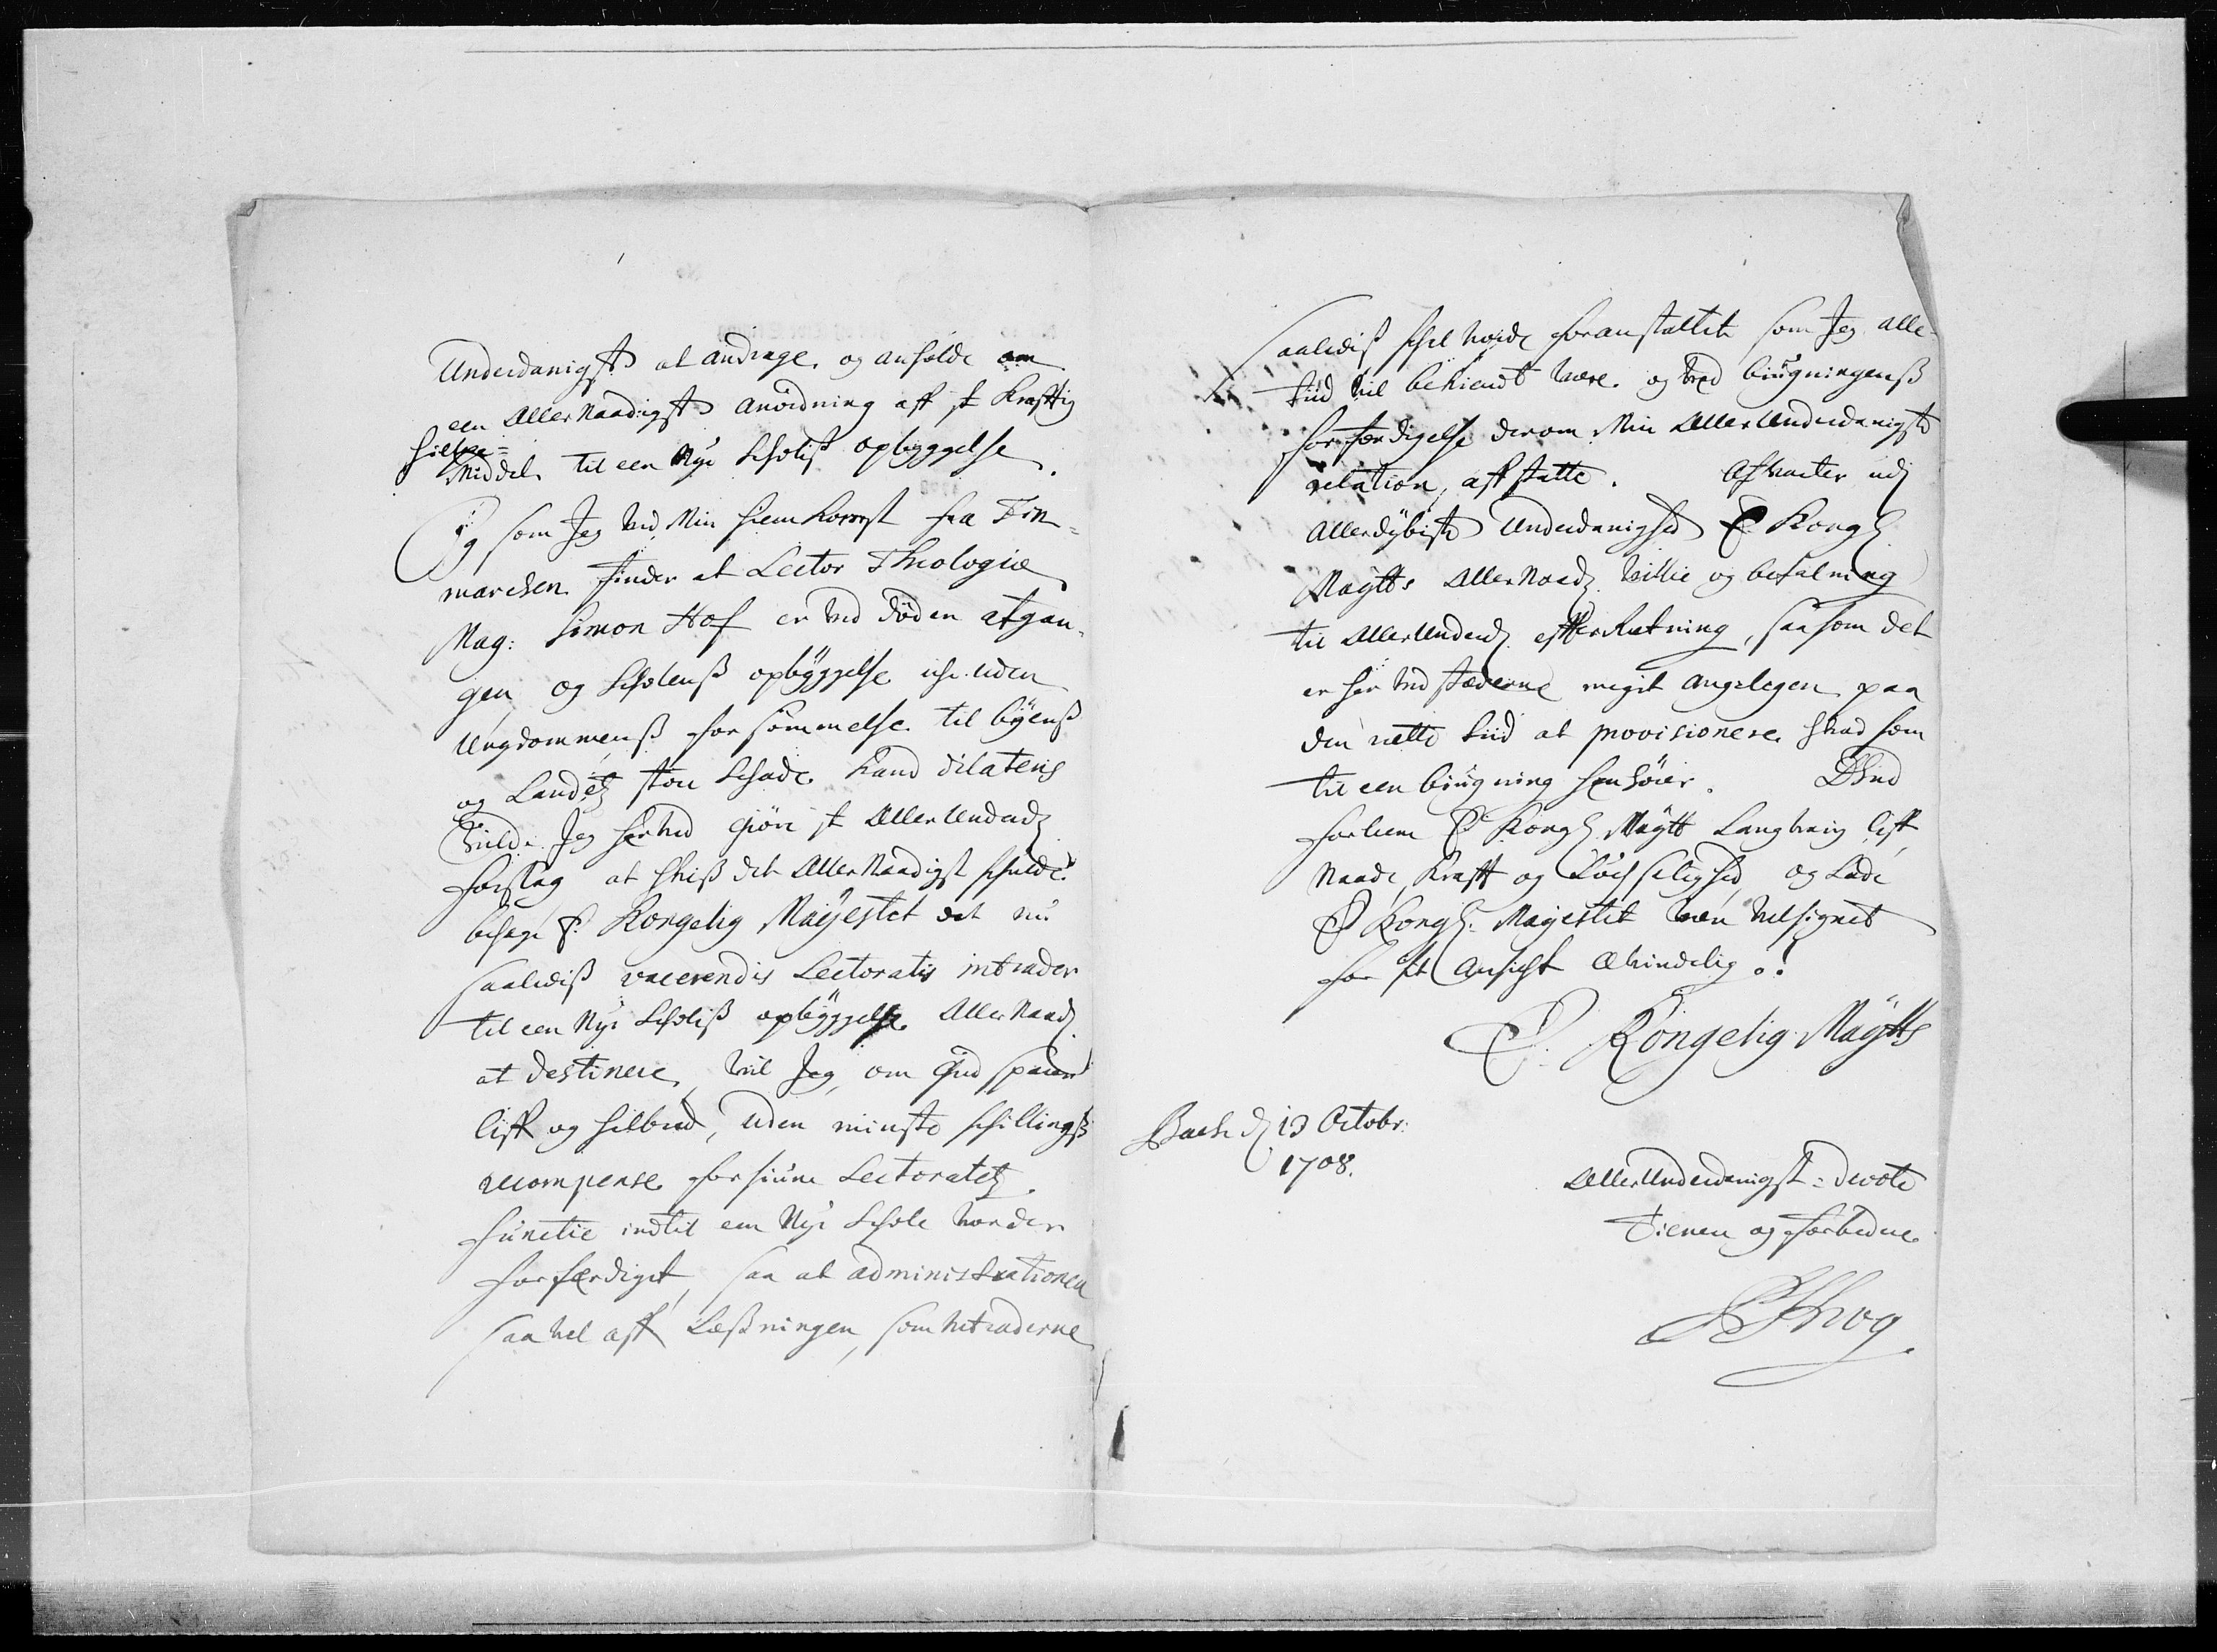 Underdanigst at andrage og anholde om
een AllerNaadigst anordning aff st Krafftig
hielpe=
Middel til een Nye Scholis opbyggelse.
Og som Jeg ved Min hiemkomst fra Fin=
marchen finder at Lector Theologiæ
Mag: Simon Hof er ved døden afgan=
gen, og Scholenß opbÿggelse icke uden
Ungdommenß forsømmelse til bÿenß
og Landetz store Schade kand dilateris
Vilde Jeg herved giøre st AllerUnderd.
forslag at hviß det AllerNaadigst schulde
behage E. Kongelig Mayestet det nu
saaledis vacerendis Lectoratis intrader
til een Nye Scholiß opbÿggelse AllerNaad.
at destinere, vil Jeg, om Gud sparer
liff og helbred, uden minste schillingß
recompense forhiune Lectoratetz
functie indtil een Nye Schole vorder
forferdiget, saa at administrationen
saa vel aff Læßningen, som Intraderne
saaledis schal vorde foranstaltet som Jeg alle=
tiid vil bekiendt være og ved biugningenß
forferdigelse derom Min AllerUnderdanigste
relation afstatte. Afvarter udj
allerdÿbiste Underdanighed E. Kongl.
Maÿtts AllerNaad. Villie og befalning
til AllerUnderd. efterRetning, saasom det
er her ved stæderne meget angelegen paa
den rette tiid at provisionere hvad som
til een biugning henhører. Gud
forleene E. Kongl. Maÿtt Langvarig liff,
Naade, Krafft og Lÿchsalighed, og Lade
E. Kongl. Mayestet være velsignet
for sit Ansicht Ævindelig.!
E. Kongelig Maÿtts
Bach d. 13 Octobr:
1708.
AllerUnderdanigst=devote
Tienere og forbedere
PKrog